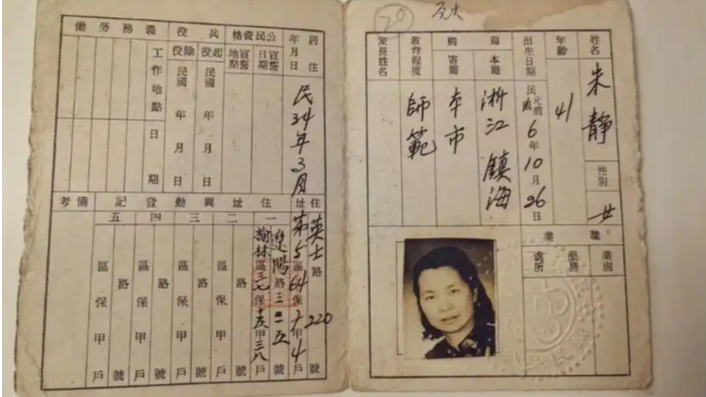 20
姓名 朱靜 性別 女
年齡 41
出生日期 民國元前 6年10月26日
籍貫 本籍 浙江鎮海
寄籍 本市
教育程度 師範
家長姓名
職業
業別
服務處所
居住年月日 民34年3月
公民資格
宣誓日期
宣誓地點
兵役
起役 民國 年 月 日
除役 民國 年 月 日
義務勞働
工作地點
日期
住址 英士路220號
第5區64保十甲4戶
住址異動登記
一 遼陽路三一五號
榆林區三七保十五甲三八戶
二 路 號
區 保 甲 戶
三 路 號
區 保 甲 戶
四 路 號
區 保 甲 戶
五 路 號
區 保 甲 戶
備考